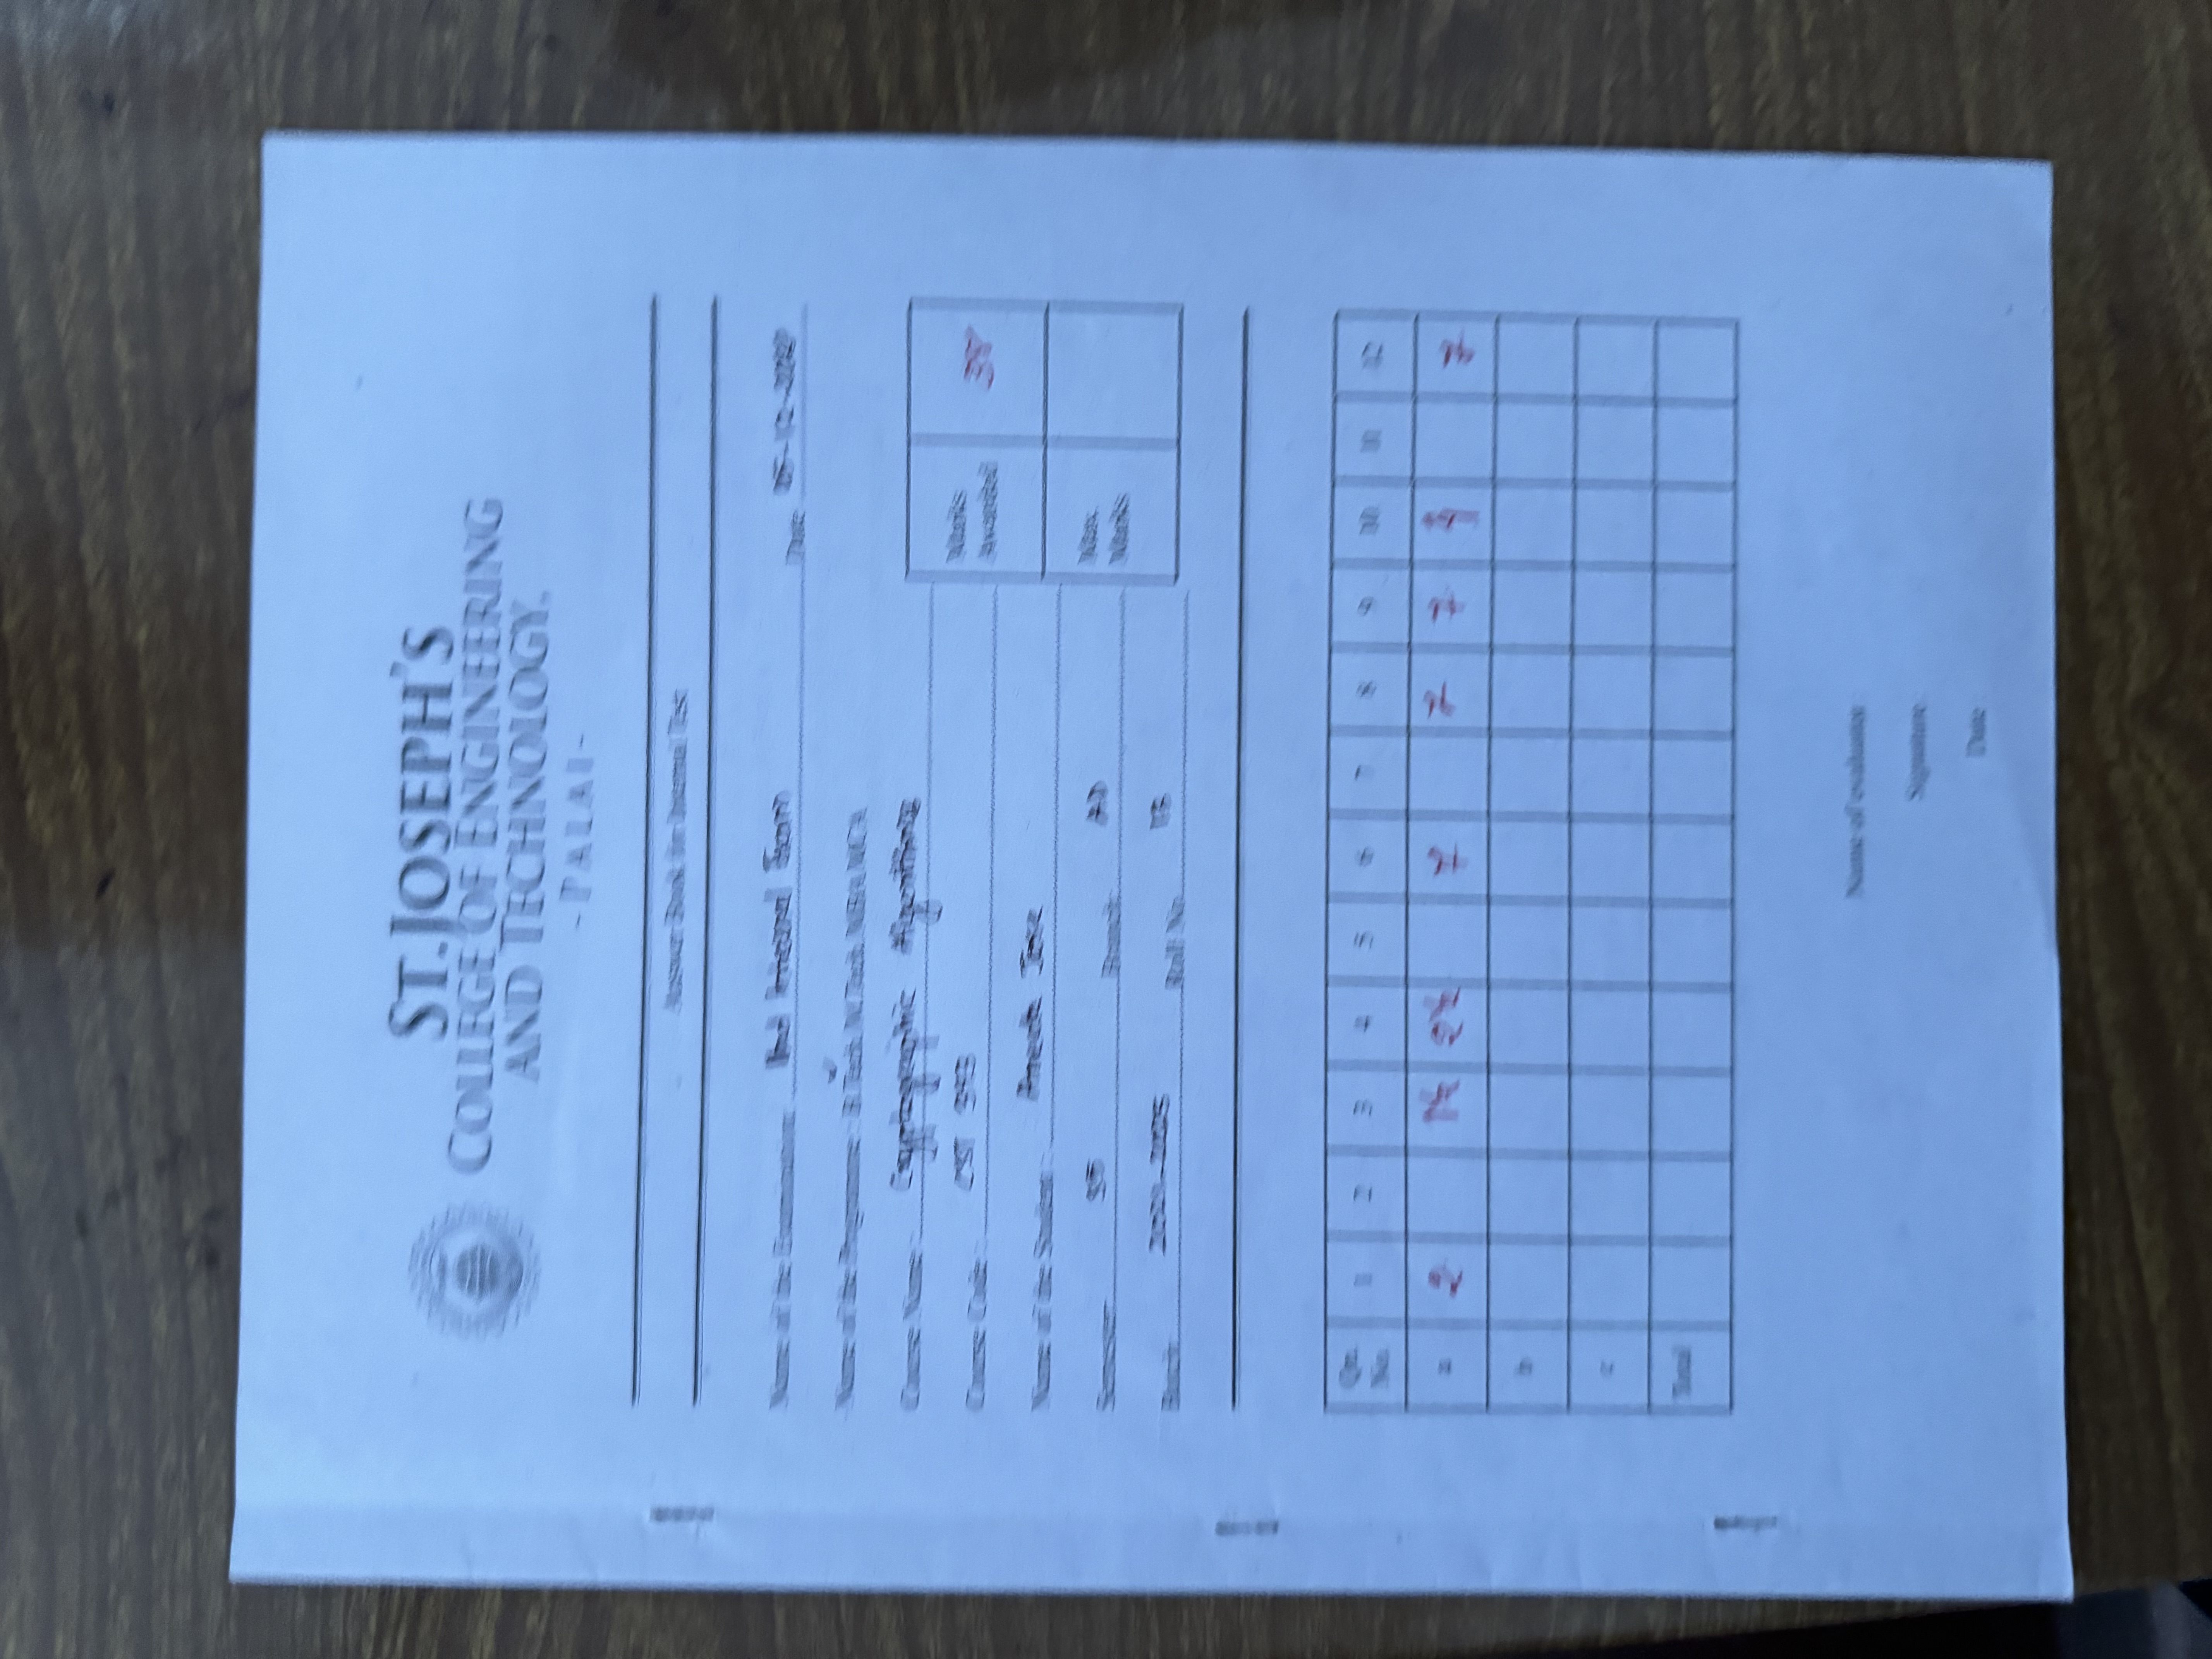 ST. JOSEPH'S
COLLEGE OF ENGINEERING
AND TECHNOLOGY.
- PALAI -
Answer Book for Internal Test
Name of the Examination: Internal Exam Date
Name of the Programme : B.Tech, M.Tech, MBA, MCA
Course Name : Cryptographic Algorithms
Course Code : CST 393
Marks Awarded 38
Name of the Student : Jose
Semester S5 Branch AD
Max. Marks
Batch 2021-2025 Roll No.
Qn. No. 1 2 3 4 5 6 7 8 9 10 11 12
a 2 1½ 2½ 7 7 7 7
b
c
Total
Name of evaluator
Signature
Date